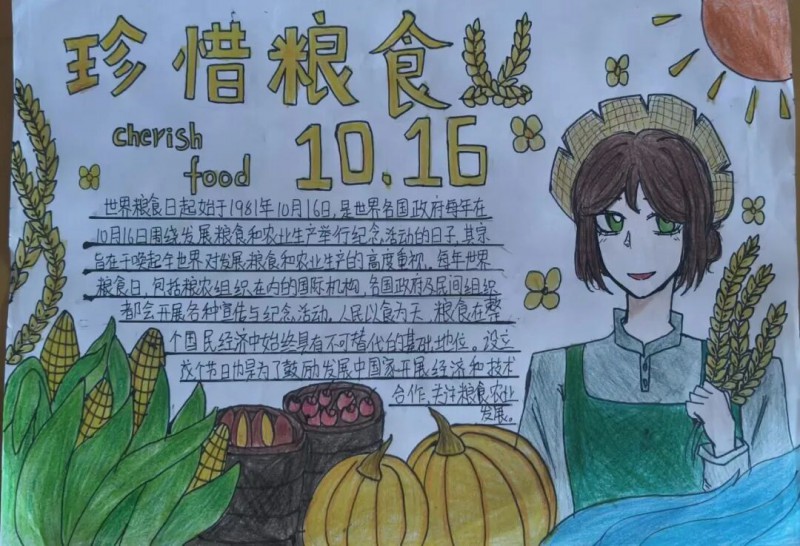 珍惜粮食
cherish
food
10.16
世界粮食日起始于1981年10月16日,是世界各国政府每年在
10月16日围绕发展粮食和农业生产举行纪念活动的日子,其宗
旨在于唤起全世界对发展粮食和农业生产的高度重视。每年世界
粮食日,包括粮农组织在内的国际机构,各国政府及民间组织
都会开展各种宣传与纪念活动,人民以食为天,粮食在整
个国民经济中始终具有不可替代的基础地位。设立
这个节日也是为了鼓励发展中国家开展经济和技术
合作,关注粮食农业
发展。